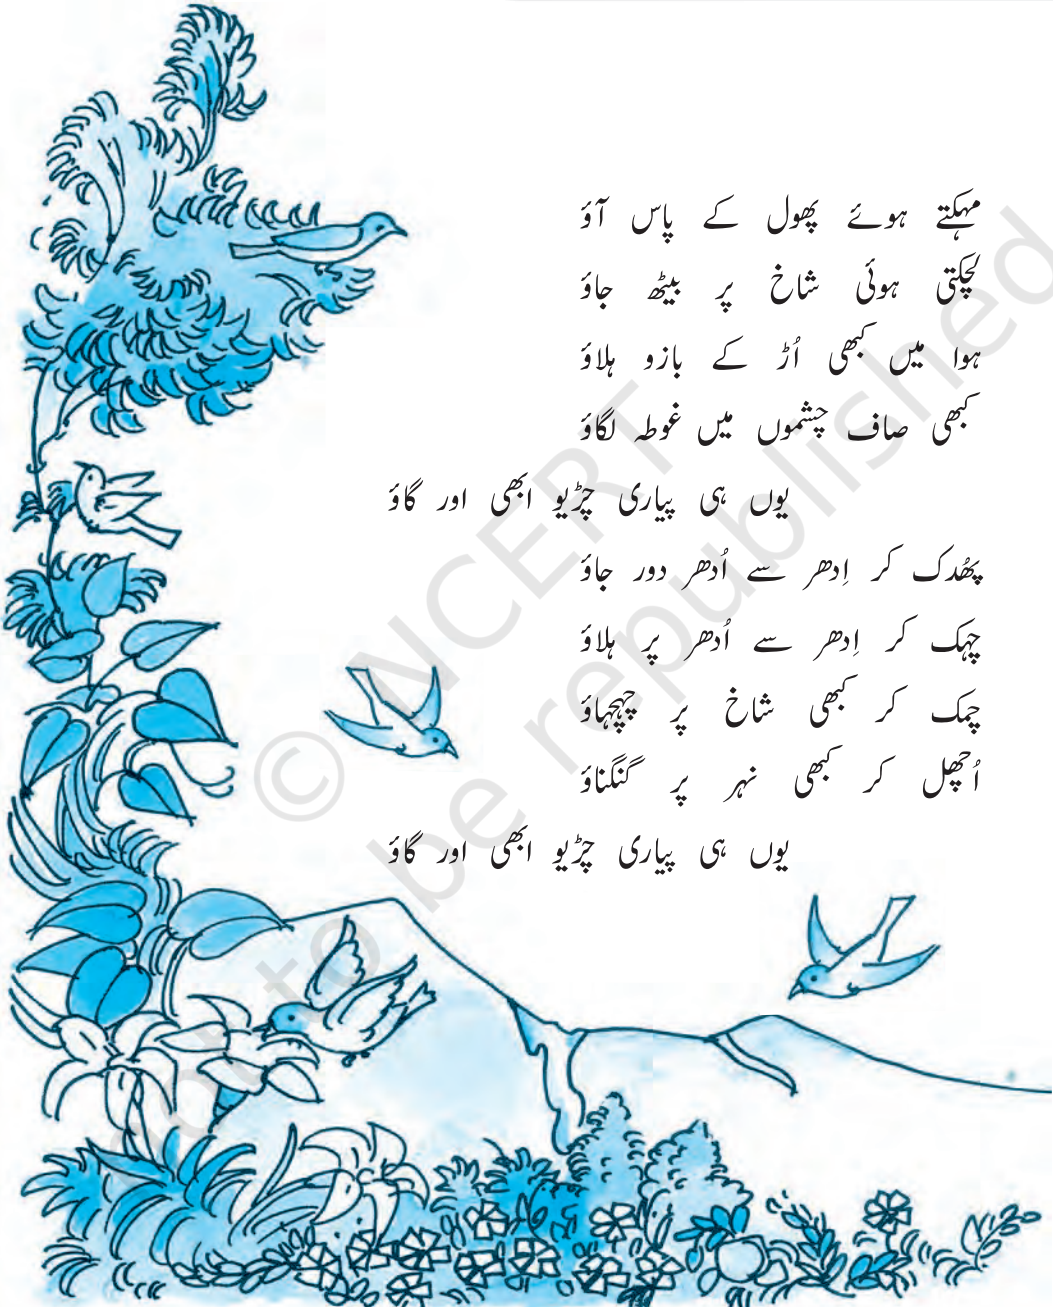 مہکتے ہوئے پھول کے پاس آؤ
لچکتی ہوئی شاخ پر بیٹھ جاؤ
ہوا میں کبھی اُڑ کے بازو ہلاؤ
کبھی صاف چشموں میں غوطہ لگاؤ
یوں ہی پیاری چڑیو ابھی اور گاؤ
پھُدک کر اِدھر سے اُدھر دور جاؤ
چہک کر اِدھر سے اُدھر پر ہلاؤ
چمک کر کبھی شاخ پر چہچہاؤ
اُچھل کر کبھی نہر پر گنگناؤ
یوں ہی پیاری چڑیو ابھی اور گاؤ
© NCERT
to be republished